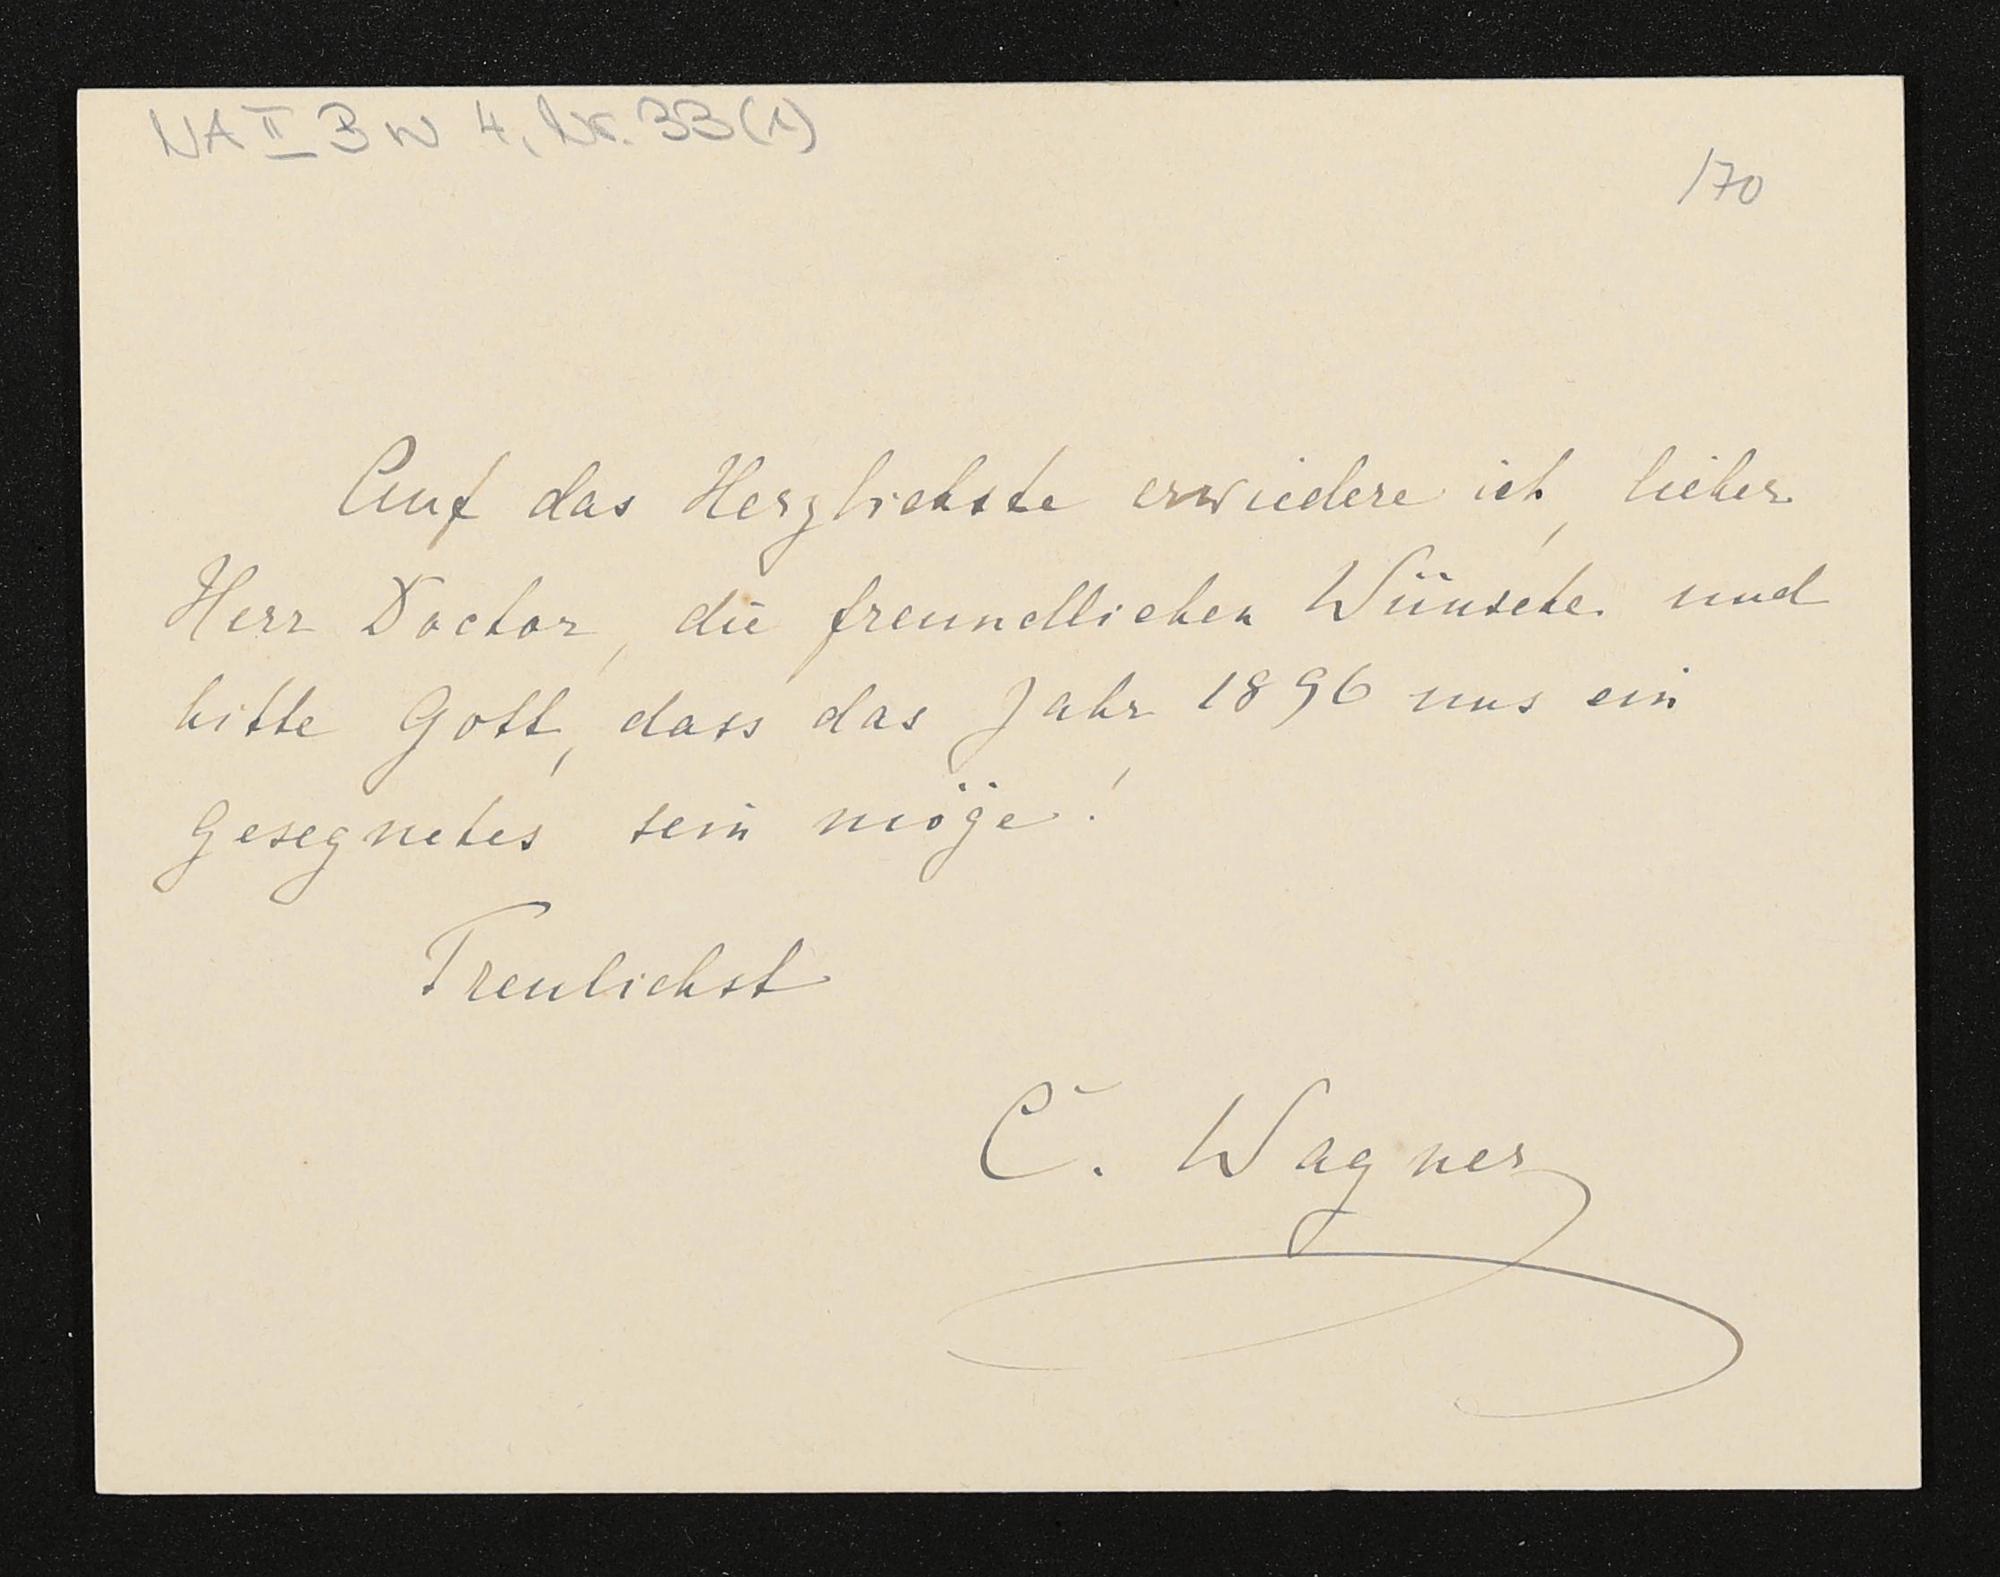 NA II B W 4, Nr. 33 (1)
170
Auf das Herzlichste erwiedere ich, lieber
Herr Doctor, die freundlichen Wünsche und
bitte Gott, dass das Jahr 1896 uns ein
gesegnetes sein möge!
Treulichst
C. Wagner